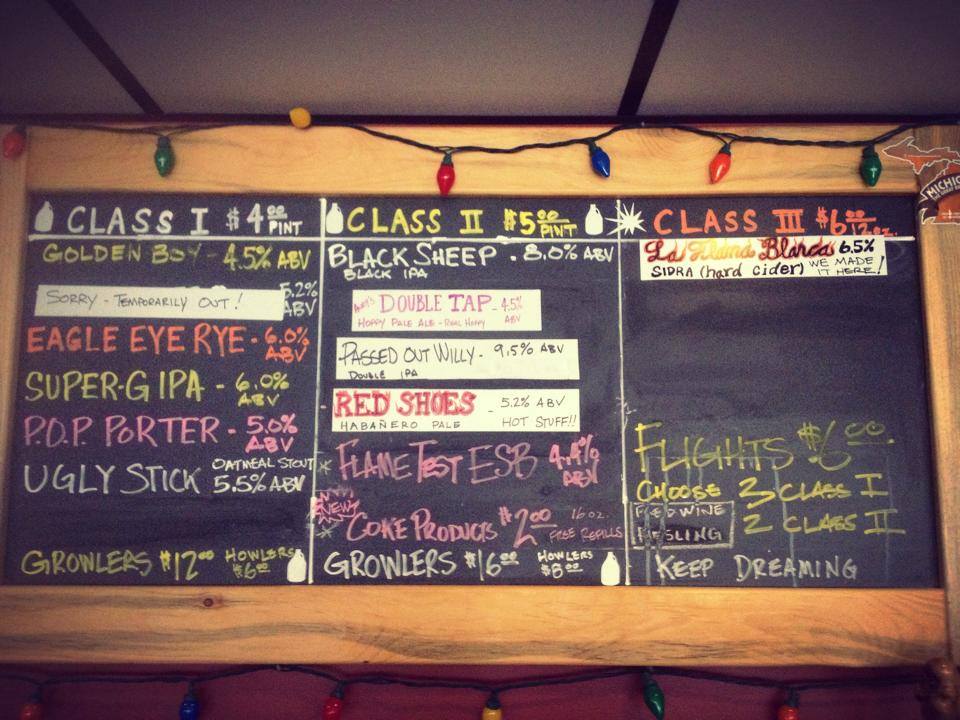 CLASS I $4.00 PINT
GOLDEN BOY - 4.5% ABV
SORRY - TEMPORARILY OUT!
5.2% ABV
EAGLE EYE RYE - 6.0% ABV
SUPER-G IPA - 6.0% ABV
P.O.P. PORTER - 5.0% ABV
UGLY STICK OATMEAL STOUT 5.5% ABV
GROWLERS $12.00 HOWLERS $6.00
CLASS II $5.00 PINT
BLACK SHEEP - 8.0% ABV
BLACK IPA
DOUBLE TAP - 4.5% ABV
HOPPY PALE ALE - REAL HOPPY
PASSED OUT WILLY - 9.5% ABV
DOUBLE IPA
RED SHOES - 5.2% ABV
HABAÑERO PALE HOT STUFF!!
FLAME TEST ESB 4.4% ABV
NEW!
COKE PRODUCTS $2.00 16 oz. FREE REFILLS
GROWLERS $16.00 HOWLERS $8.00
CLASS III $6.00 12 oz.
La Llama Blanca 6.5%
SIDRA (hard cider) WE MADE IT HERE!
FLIGHTS $6.00
CHOOSE 3 CLASS I
2 CLASS II
RED WINE
RIESLING
KEEP DREAMING
MICHIG